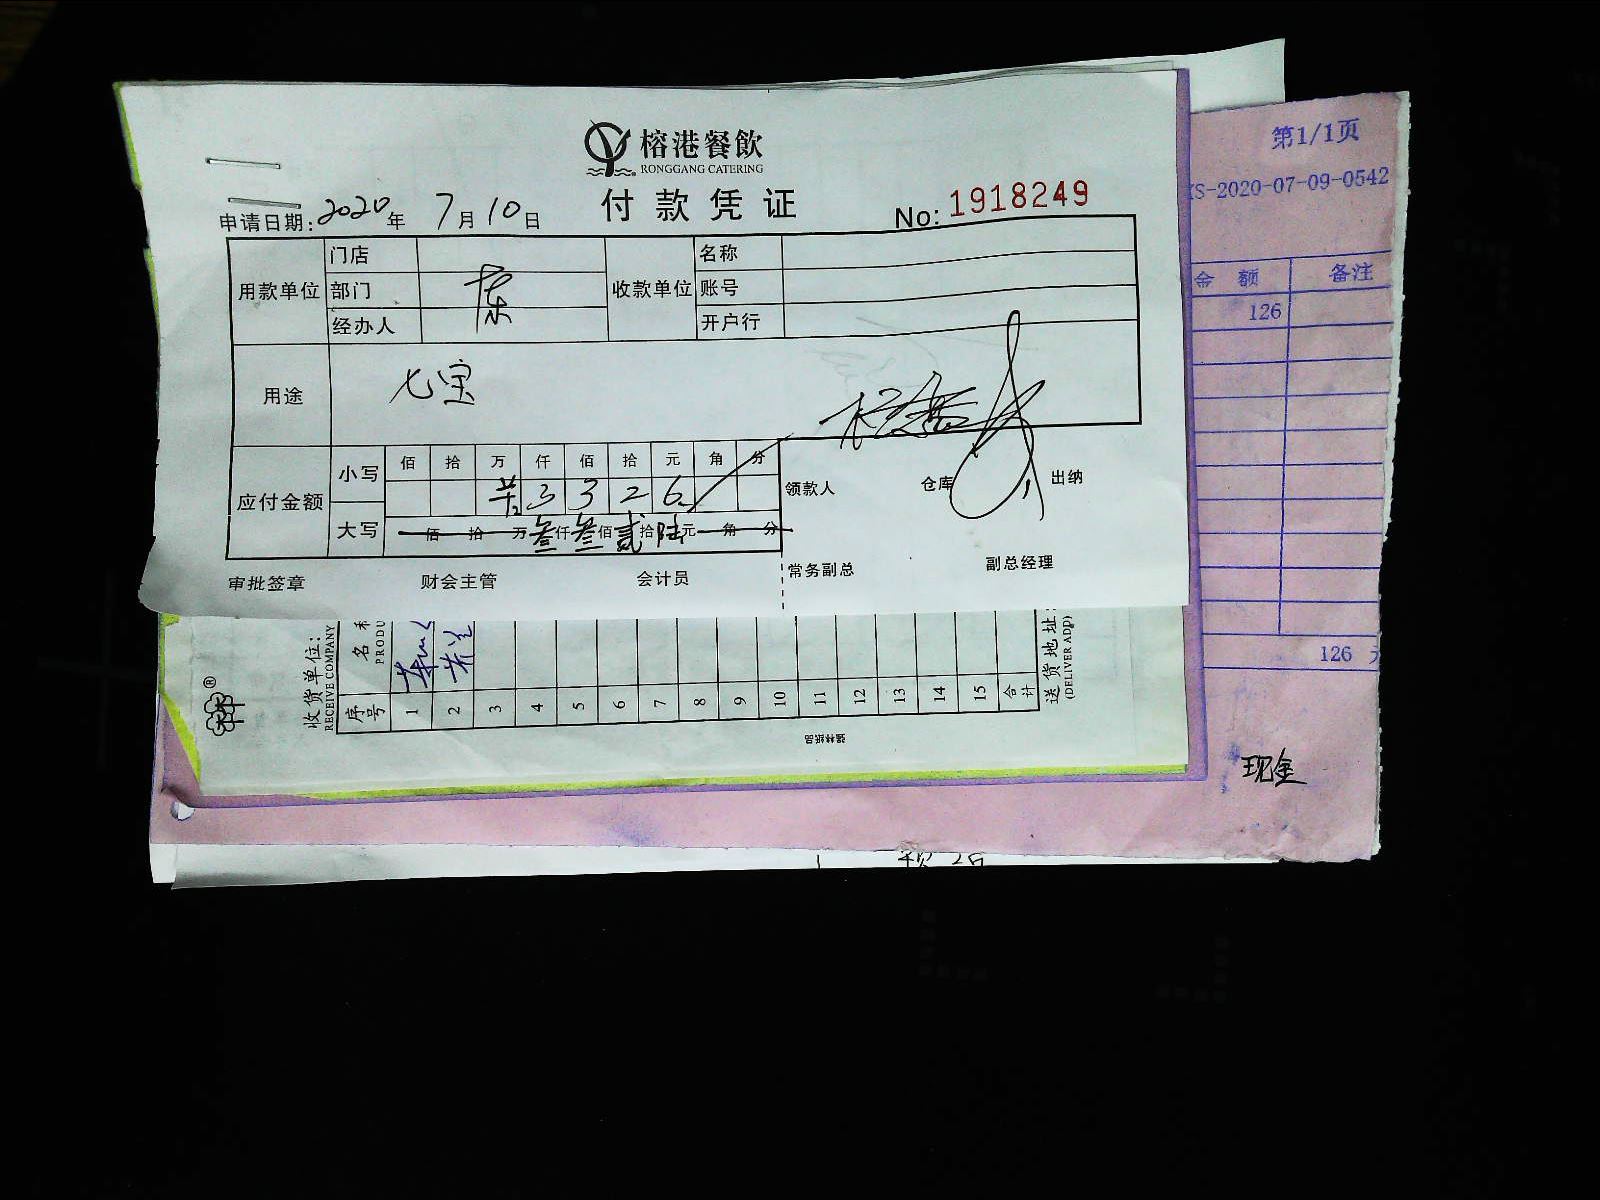 榕港餐飲
RONGGANG CATERING
付款凭证
申请日期: 2020 年 7 月 10 日
No: 1918249
用款单位 门店 收款单位 名称
部门 账号
经办人 开户行
用途 七宝
应付金额 小写 佰 拾 万 仟 佰 拾 元 角 分
3 3 2 6
大写 佰 拾 万 叁仟 叁佰 贰拾 陆元 角 分
领款人 仓库 出纳
审批签章 财会主管 会计员 常务副总 副总经理
第1/1页
XS-2020-07-09-0542
金额 备注
126
126
现金
收货单位:
RECEIVE COMPANY
序号
PRODU
1 2 3 4 5 6 7 8 9 10 11 12 13 14 15 合计
送货地址:
(DELIVER ADD)